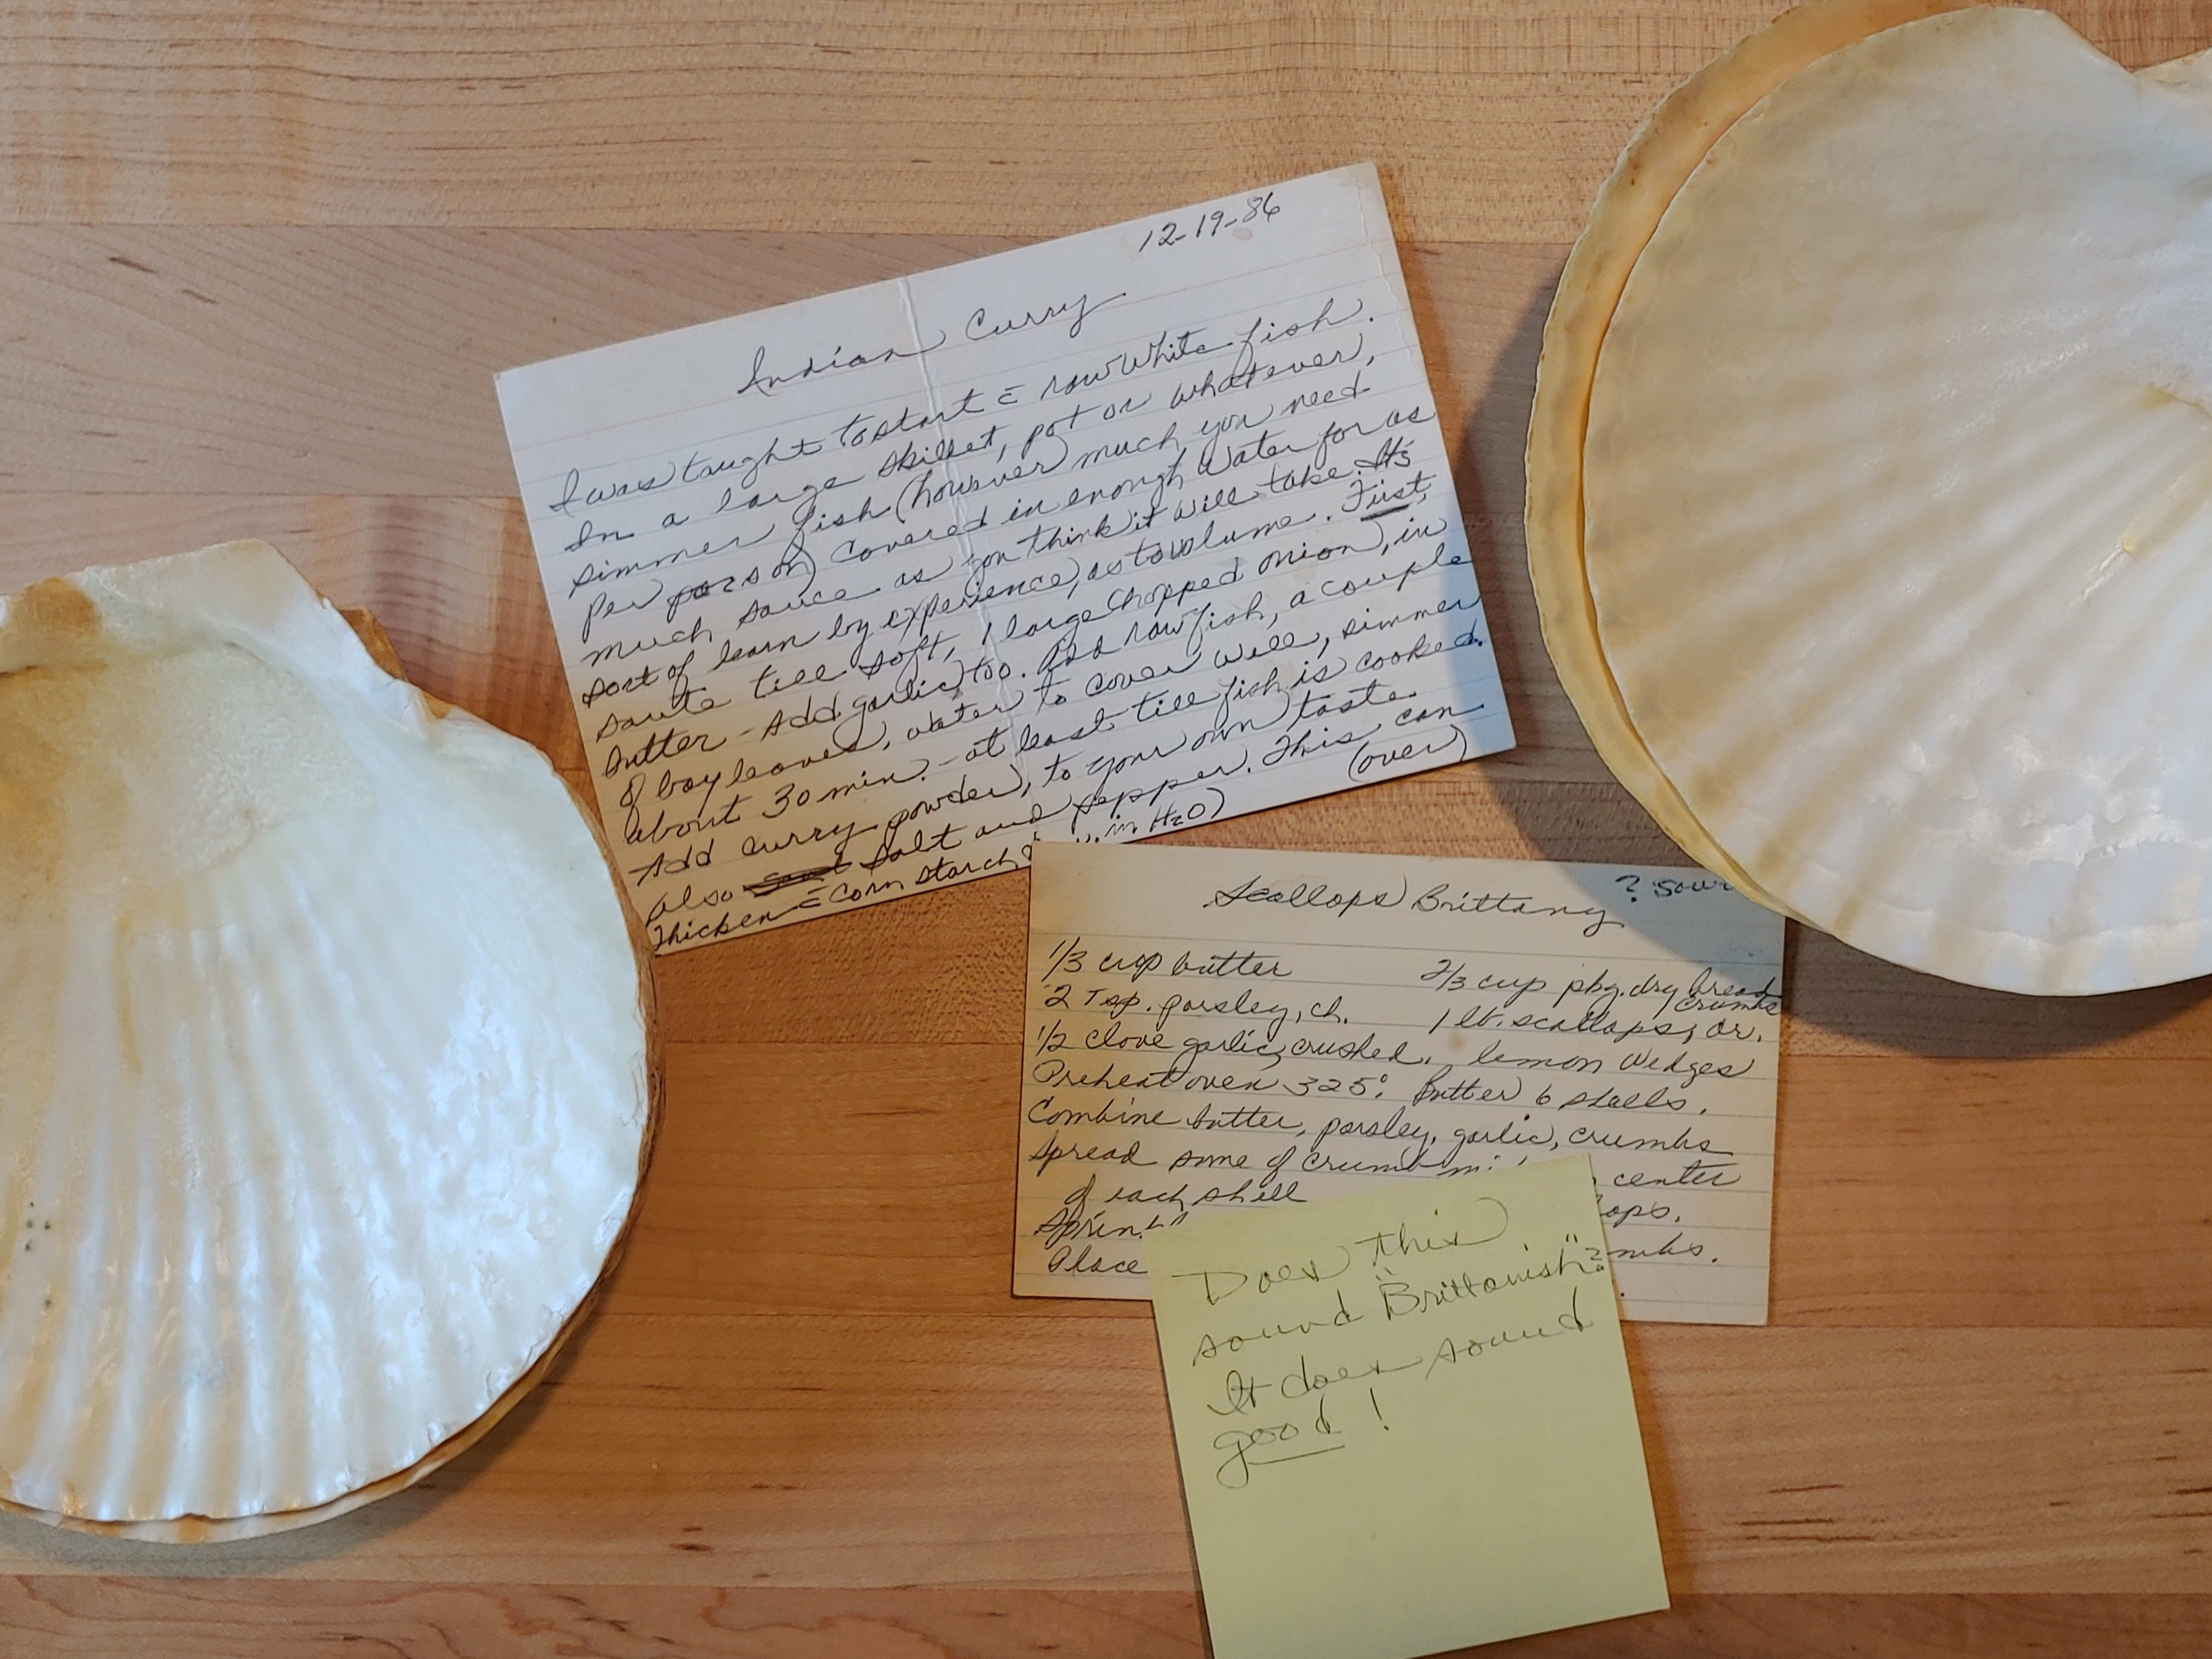 12-19-86
Indian Curry
I was taught to start c̄ raw white fish.
In a large skillet, pot or whatever,
simmer fish (however much you need
per person) covered in enough water for as
much sauce as you think it will take. It's
sort of learn by experience, as to volume. First,
saute till soft, 1 large chopped onion, in
butter - Add garlic, too. Add raw fish, a couple
of bay leaves, water to cover well, simmer
about 30 min. - at least till fish is cooked.
Add curry powder, to your own taste.
Also salt and pepper. This can
(over)
Thicken c̄ corn starch in H2O)
Scallops Brittany
? sour
1/3 cup butter
2/3 cup pkg. dry bread crumbs
2 Tsp. parsley, ch.
1 lb. scallops, dr.
1/2 clove garlic, crushed.
lemon wedges
Preheat oven 325°. Butter 6 shells.
Combine butter, parsley, garlic, crumbs
Spread some of crumb center
of each shell
Place
Does this
sound "Brittanish"?
It does sound
good!